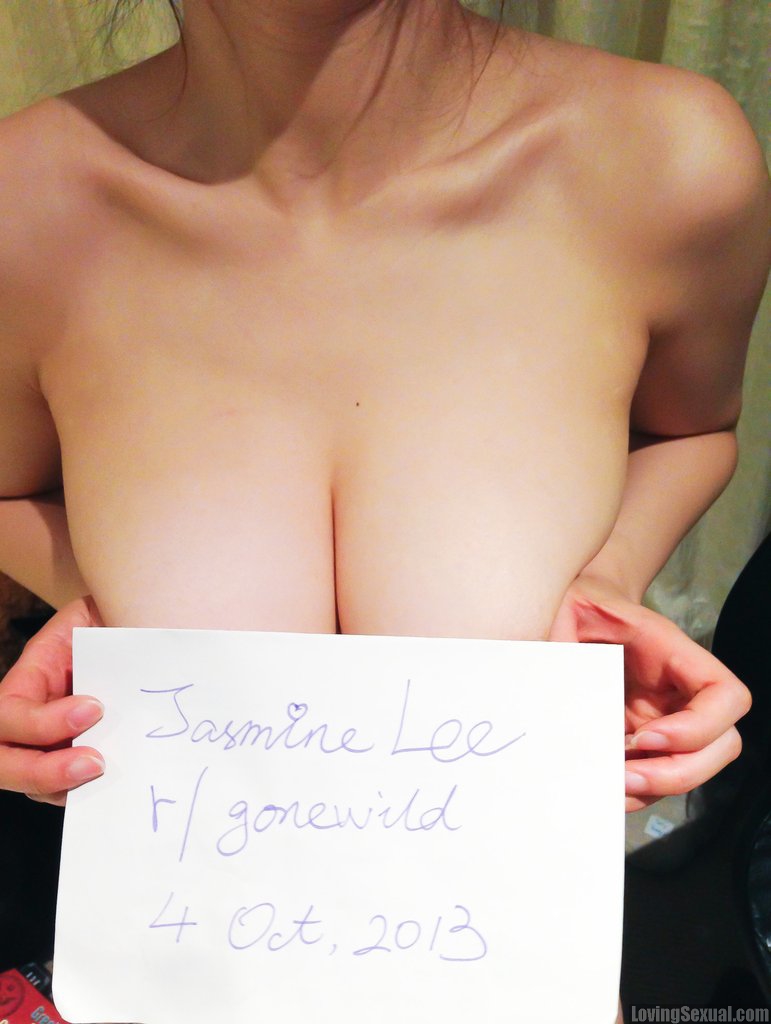 Jasmine Lee
r/gonewild
4 Oct, 2013
LovingSexual.com